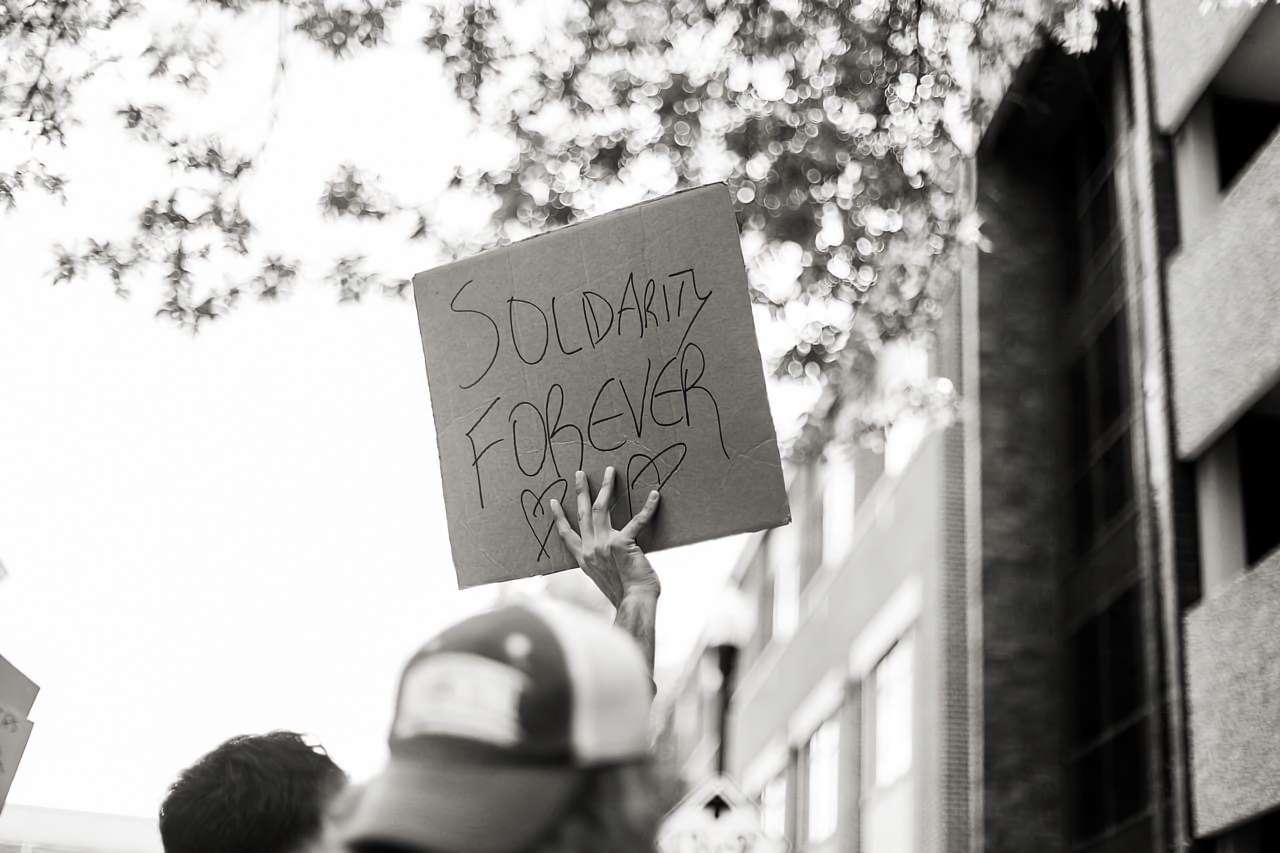 SOLDARITY
FOREVER